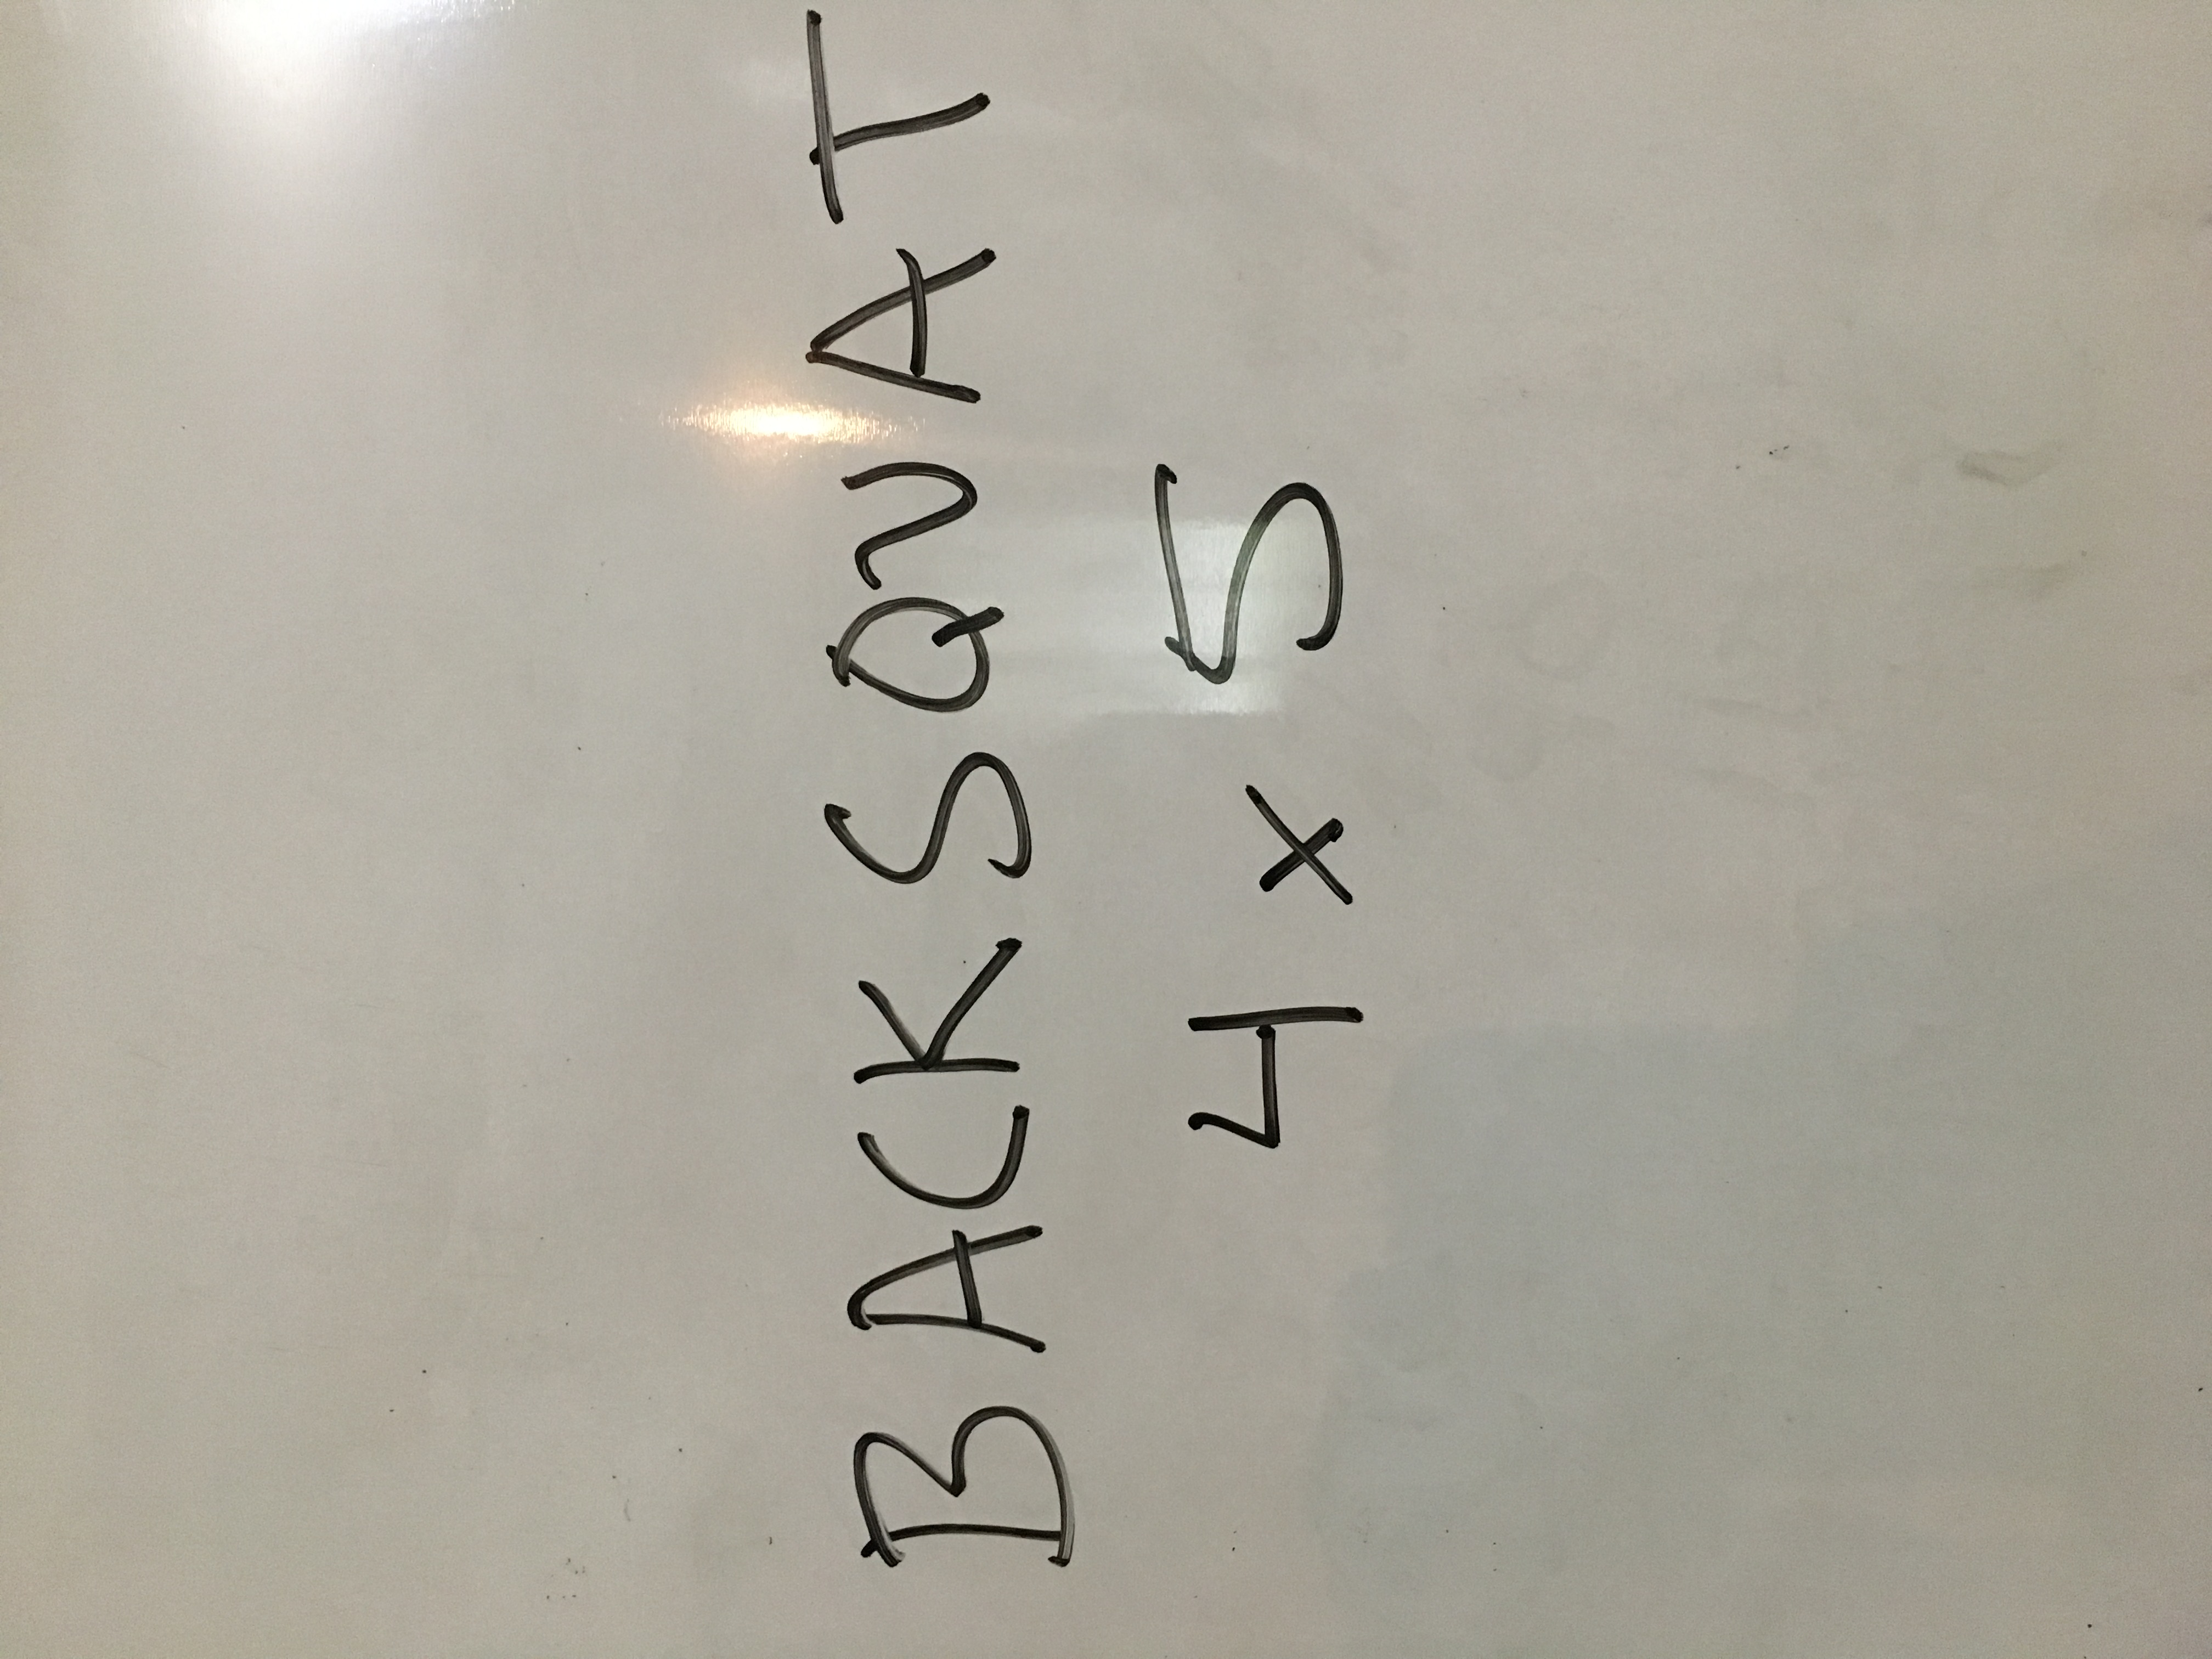 BACK SQUAT
4 x 5